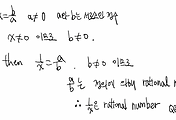 x = b/a   a≠0   a와 b는 서로소인 정수
x≠0 이므로   b≠0.
then   1/x = a/b .   b≠0 이므로
a/b 는 정의에 의해 rational n
∴ 1/x is rational number   QED